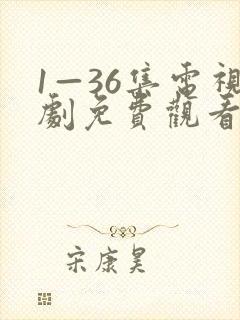 1—36集電視
劇免費觀看
宋康昊